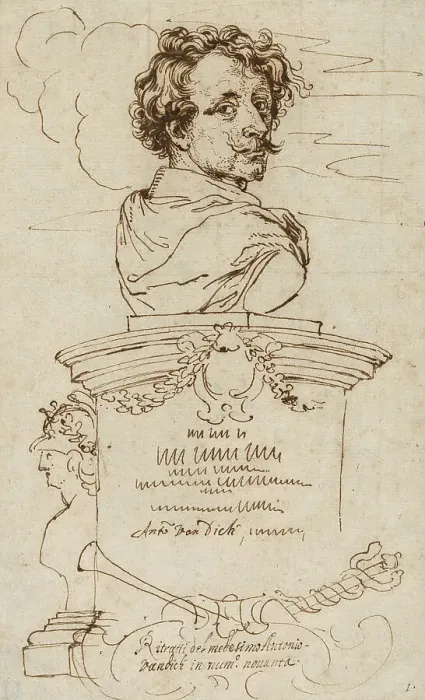 Anto Van Dick
Ritratti del medesimo Antonio
Vandich in num.o novanta
1.